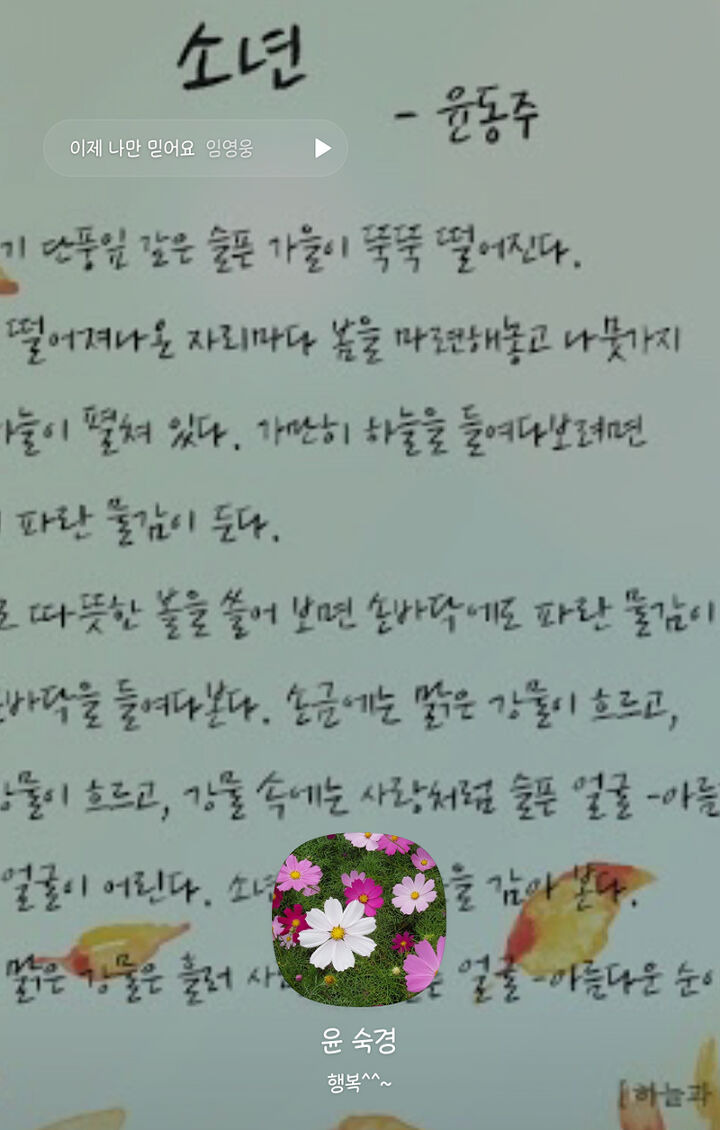 소년
- 윤동주
이제 나만 믿어요 임영웅
기 단풍잎 같은 슬픈 가을이 뚝뚝 떨어진다.
떨어져나온 자리마다 봄을 마련해놓고 나뭇가지
하늘이 펼쳐 있다. 가만히 하늘을 들여다보려면
파란 물감이 든다.
로 따뜻한 볼을 쓸어 보면 손바닥에도 파란 물감이
손바닥을 들여다본다. 손금에는 맑은 강물이 흐르고,
강물이 흐르고, 강물 속에는 사랑처럼 슬픈 얼굴 -아름
얼굴이 어린다. 소년 을 감아 본다.
맑은 강물은 흘러 사 은 얼굴 -아름다운 순이
윤 숙경
행복^^~
[하늘과